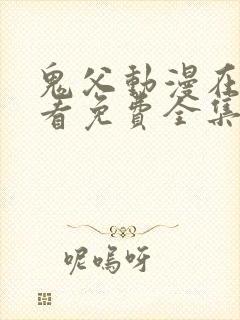 鬼父動漫在
看免費全集
呢嗚呀